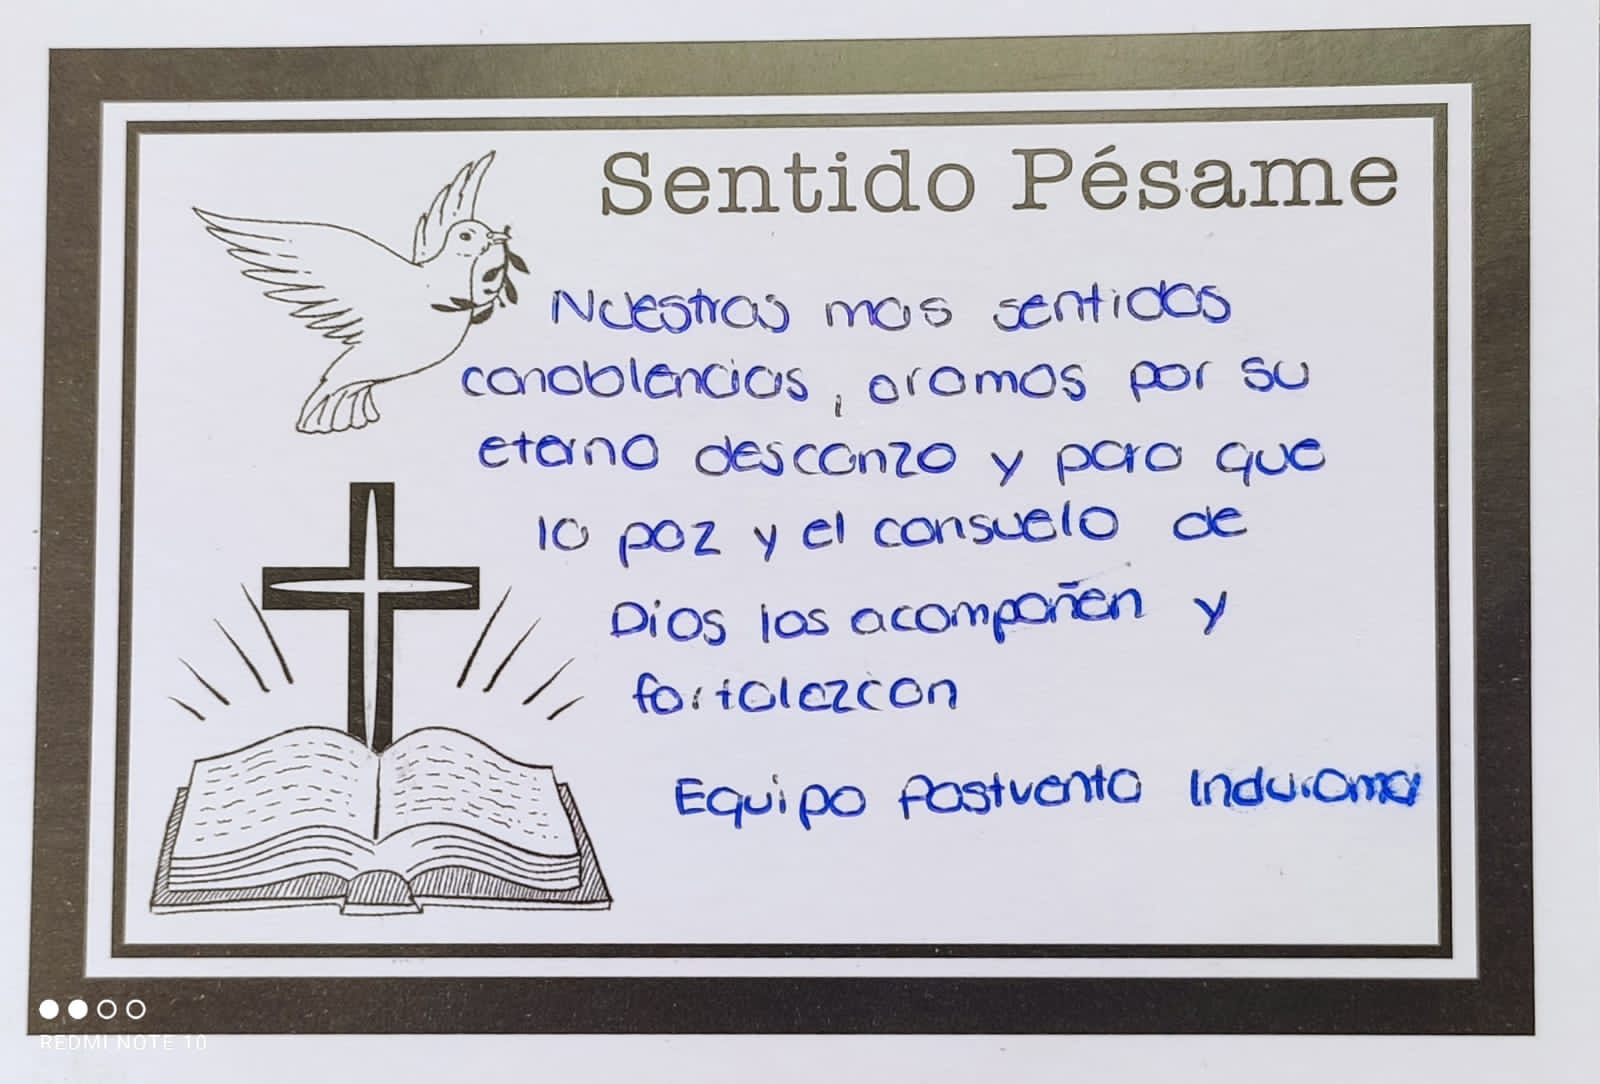 Sentido Pésame
Nuestras mas sentidas
condolencias, oramos por su
eterno descanzo y para que
la paz y el consuelo de
Dios los acompañen y
fortalezcan
Equipo Postventa Indurama
REDMI NOTE 10